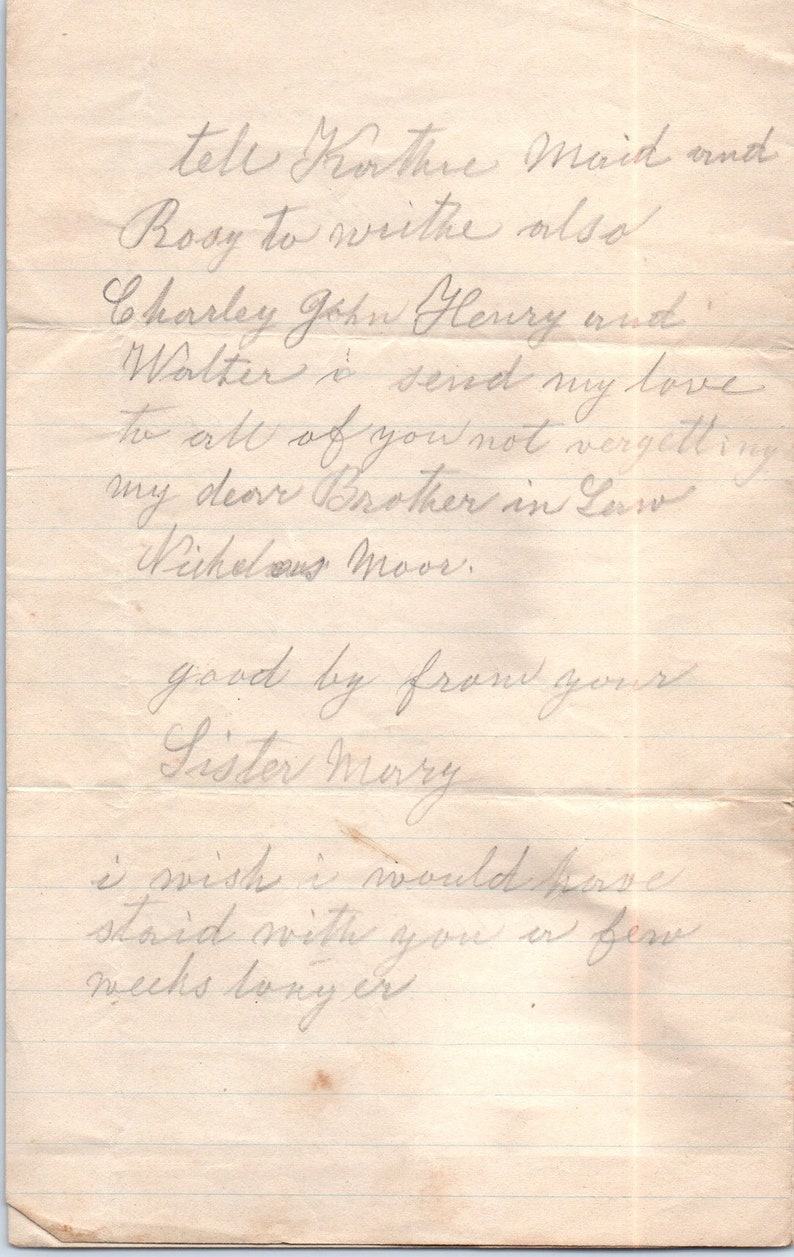 tell Kathie Maid and
Rosy to writhe also
Charley John Henry and
Walter i send my love
to all of you not vergetting
my dear Brother in Law
Nickolaus Moor.
good by from your
Sister Mary
i wish i would have
staid with you a few
weeks longer